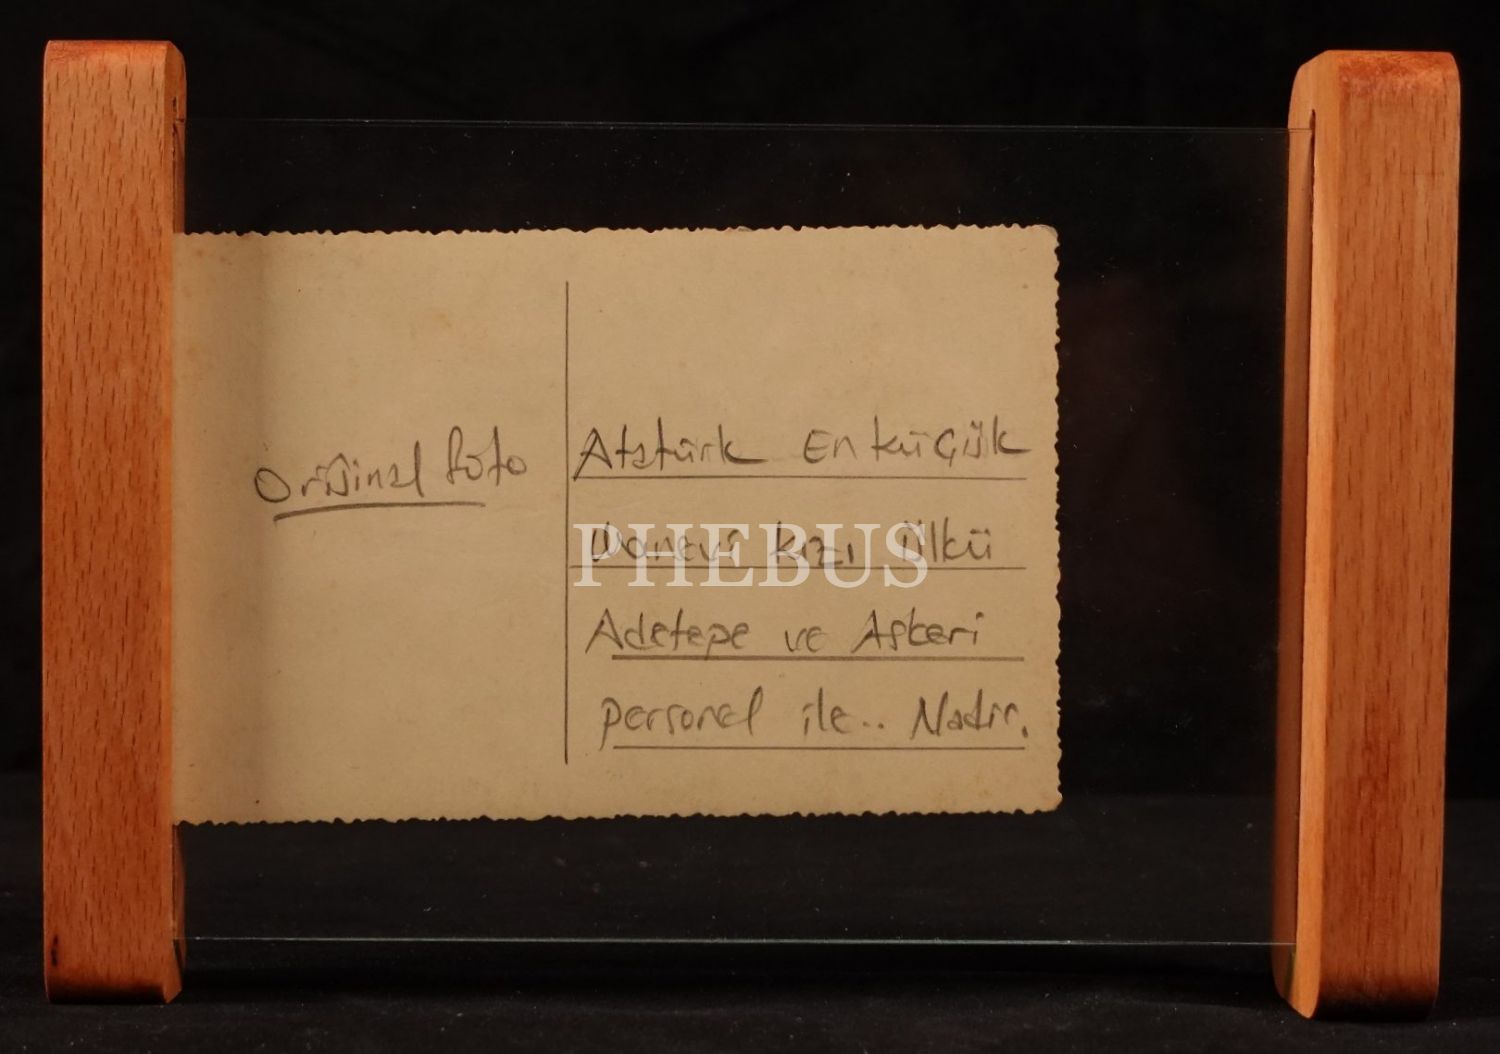 Orijinal foto
Atatürk En küçük
Manevi kızı Ülkü
Adetepe ve Askeri
personel ile.. Nadir.
PHEBUS